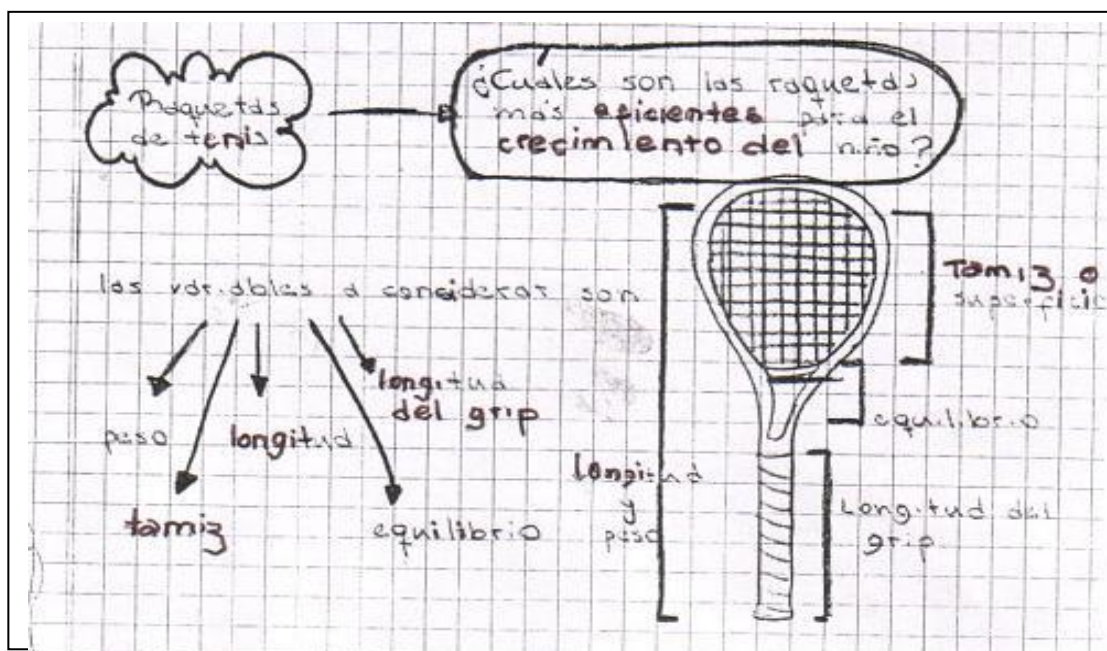 Raquetas
de tenis
¿Cuales son las raquetas
más eficientes para el
crecimiento del niño?
las variables a considerar son
peso
tamiz
longitud
longitud
del grip
equilibrio
Tamiz o
superficie
equilibrio
longitud
y
peso
Longitud del
grip